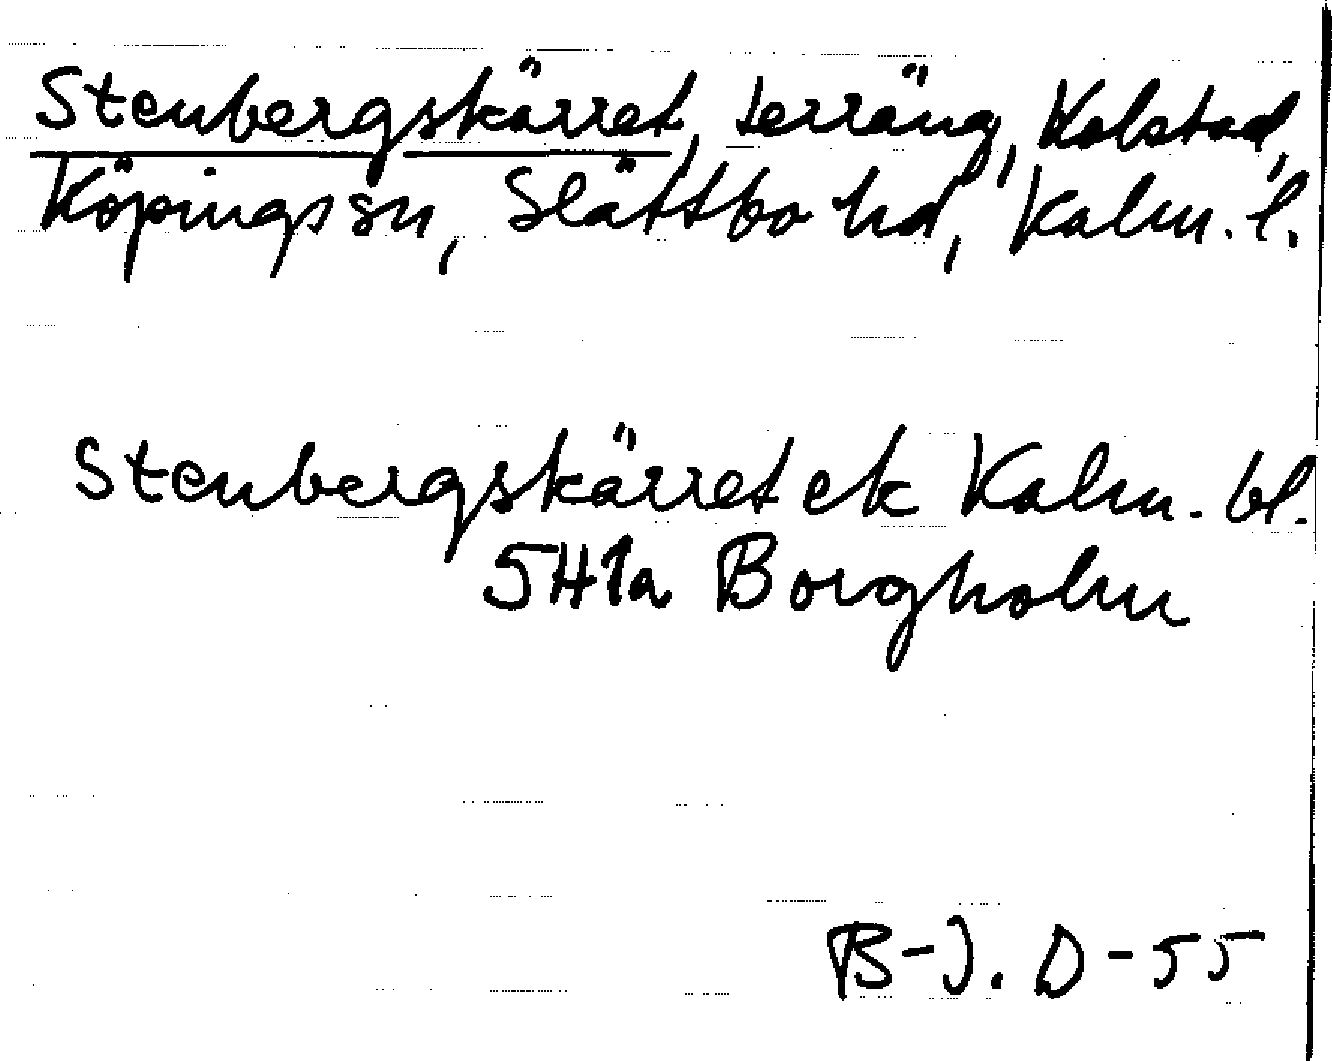 Stenbergskärret, terräng, Kolstad,
Köpings sn, Slättbo hd, Kalm. l.
Stenbergskärret ek Kalm. bl.
5H1a Borgholm
B-J. D-55